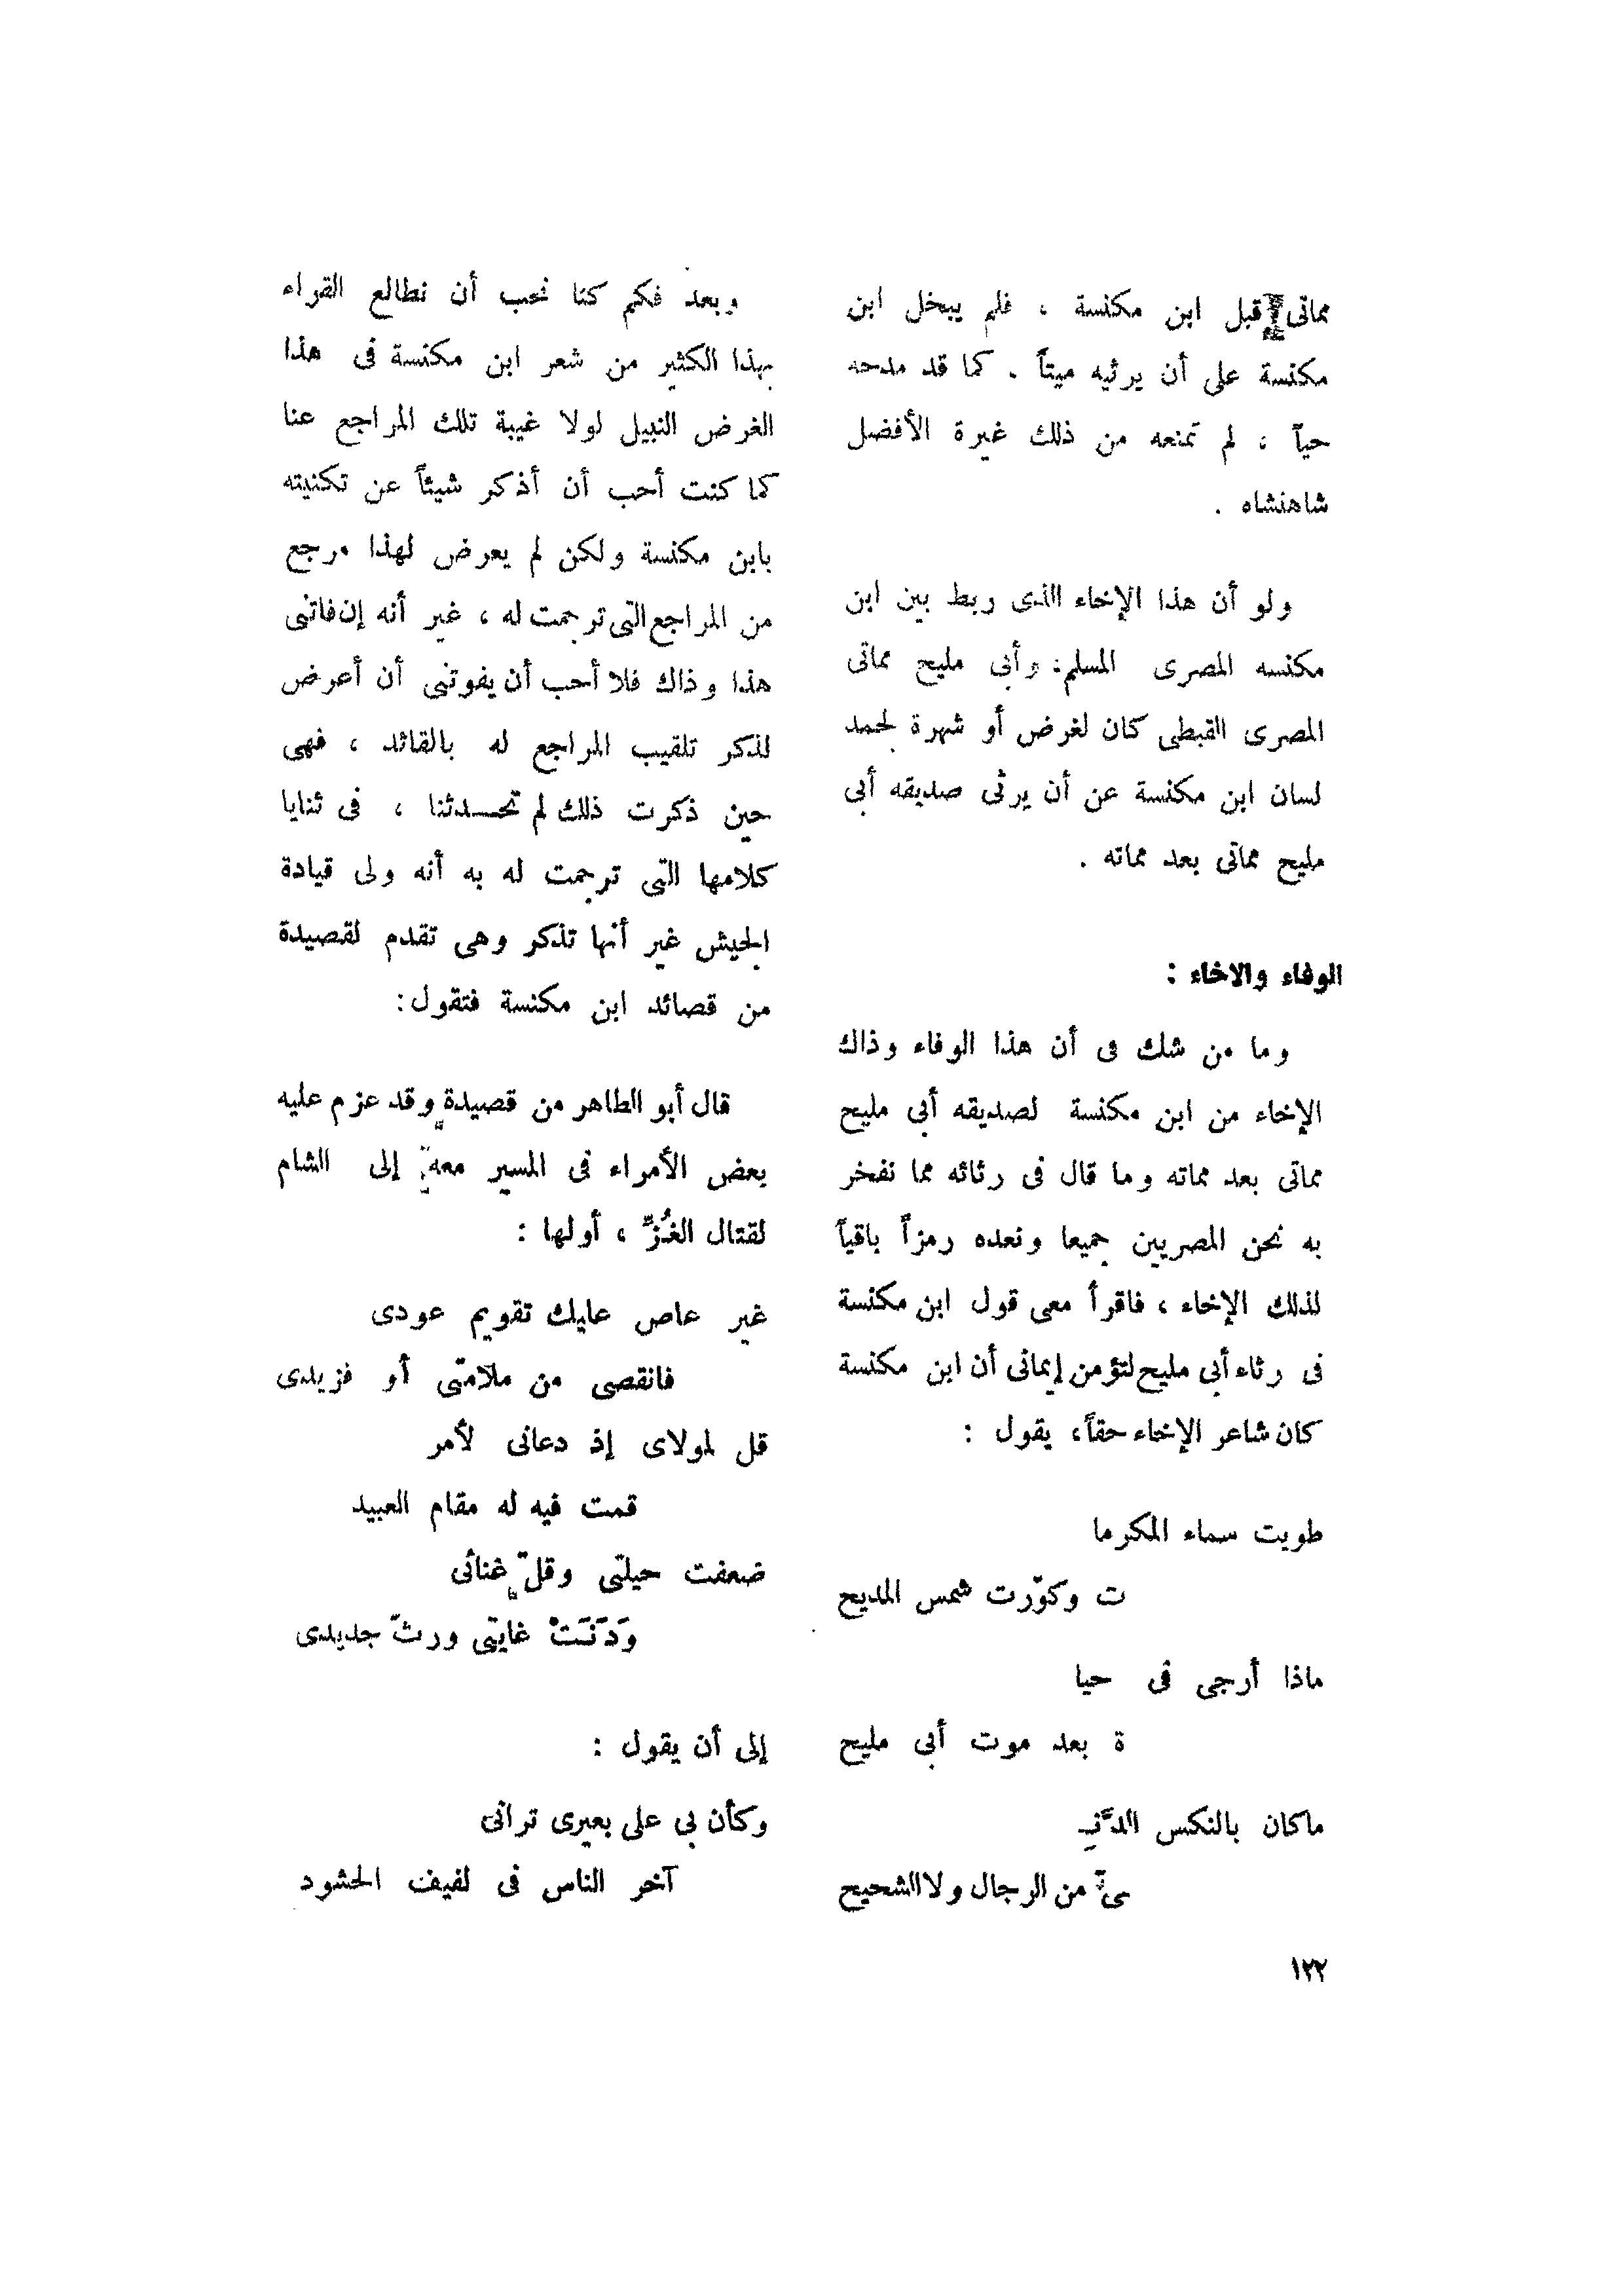 مماتى قبل ابن مكنسة ، فلم يبخل ابن
مكنسة على أن يرثيه ميتاً . كما قد مدحه
حياً ، لم تمنعه من ذلك غيرة الأفضل
شاهنشاه .
ولو أن هذا الإخاء الذى ربط بين ابن
مكنسه المصرى المسلم، وأبى مليح مماتى
المصرى القبطى كان لغرض أو شهرة لجمد
لسان ابن مكنسة عن أن يرثى صديقه أبى
مليح مماتى بعد مماته .
الوفاء والاخاء :
وما من شك فى أن هذا الوفاء وذاك
الإخاء من ابن مكنسة لصديقه أبى مليح
مماتى بعد مماته وما قال فى رثائه مما نفخر
به نحن المصريين جميعا ونعده رمزاً باقياً
لذلك الإخاء ، فاقرأ معى قول ابن مكنسة
فى رثاء أبى مليح لتؤمن إيمانى أن ابن مكنسة
كان شاعر الإخاء حقاً، يقول :
طويت سماء المكرما
ت وكوّرت شمس المديح
ماذا أرجى فى حيا
ة بعد موت أبى مليح
ماكان بالنكس الدَّنِيـ
ـىّ من الرجال ولا الشحيح
وبعد فكم كنا نحب أن نطالع القراء
بهذا الكثير من شعر ابن مكنسة فى هذا
الغرض النبيل لولا غيبة تلك المراجع عنا
كما كنت أحب أن أذكر شيئاً عن تكنيته
بابن مكنسة ولكن لم يعرض لهذا مرجع
من المراجع التى ترجمت له ، غير أنه إن فاتنى
هذا وذاك فلا أحب أن يفوتنى أن أعرض
لذكر تلقيب المراجع له بالقائد ، فهى
حين ذكرت ذلك لم تحــدثنا ، فى ثنايا
كلامها التى ترجمت له به أنه ولى قيادة
الجيش غير أنها تذكر وهى تقدم لقصيدة
من قصائد ابن مكنسة فتقول:
قال أبو الطاهر من قصيدة وقد عزم عليه
بعض الأمراء فى المسير معه إلى الشام
لقتال الغُزِّ ، أولها :
غير عاص عليك تقويم عودى
فانقصى من ملامتى أو فزيدى
قل لمولاى إذ دعانى لأمر
قمت فيه له مقام العبيد
ضعفت حيلتى وقلّ غنائى
وَدَنَتْ غايتى ورثّ جديدى
إلى أن يقول :
وكأن بى على بعيرى ترانى
آخر الناس فى لفيف الحشود
١٢٢